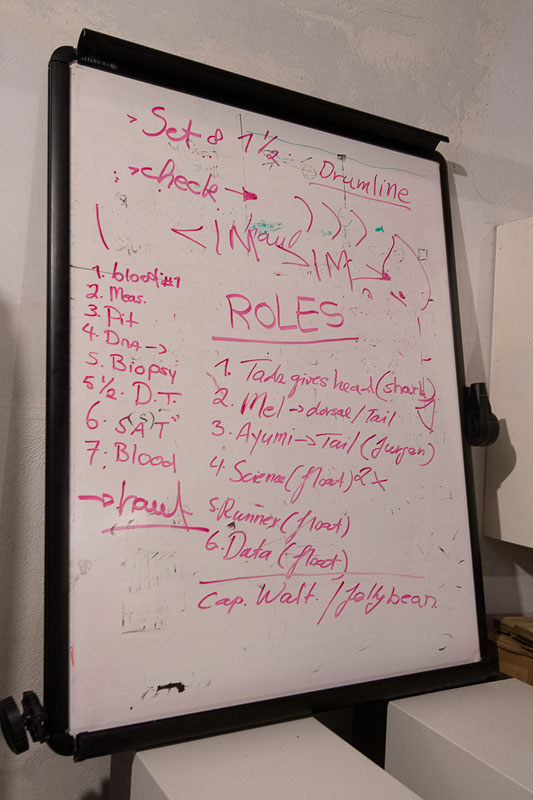 > Set 8 1 1/2
Drumline
> check →
< 1M
1M
ROLES
1. blood #1
2. Meas.
3. Pit
4. DNA →
5. Biopsy
5 1/2. D.T.
6. SAT
(S)
7. Blood
1. Tadz gives head (shark)
2. Mel → dorsal/Tail
3. Ayumi → Tail (Jurgen)
4. Science (float) 2x
5. Runner (float)
6. Data (float)
Cap. Walt. / Jollybean